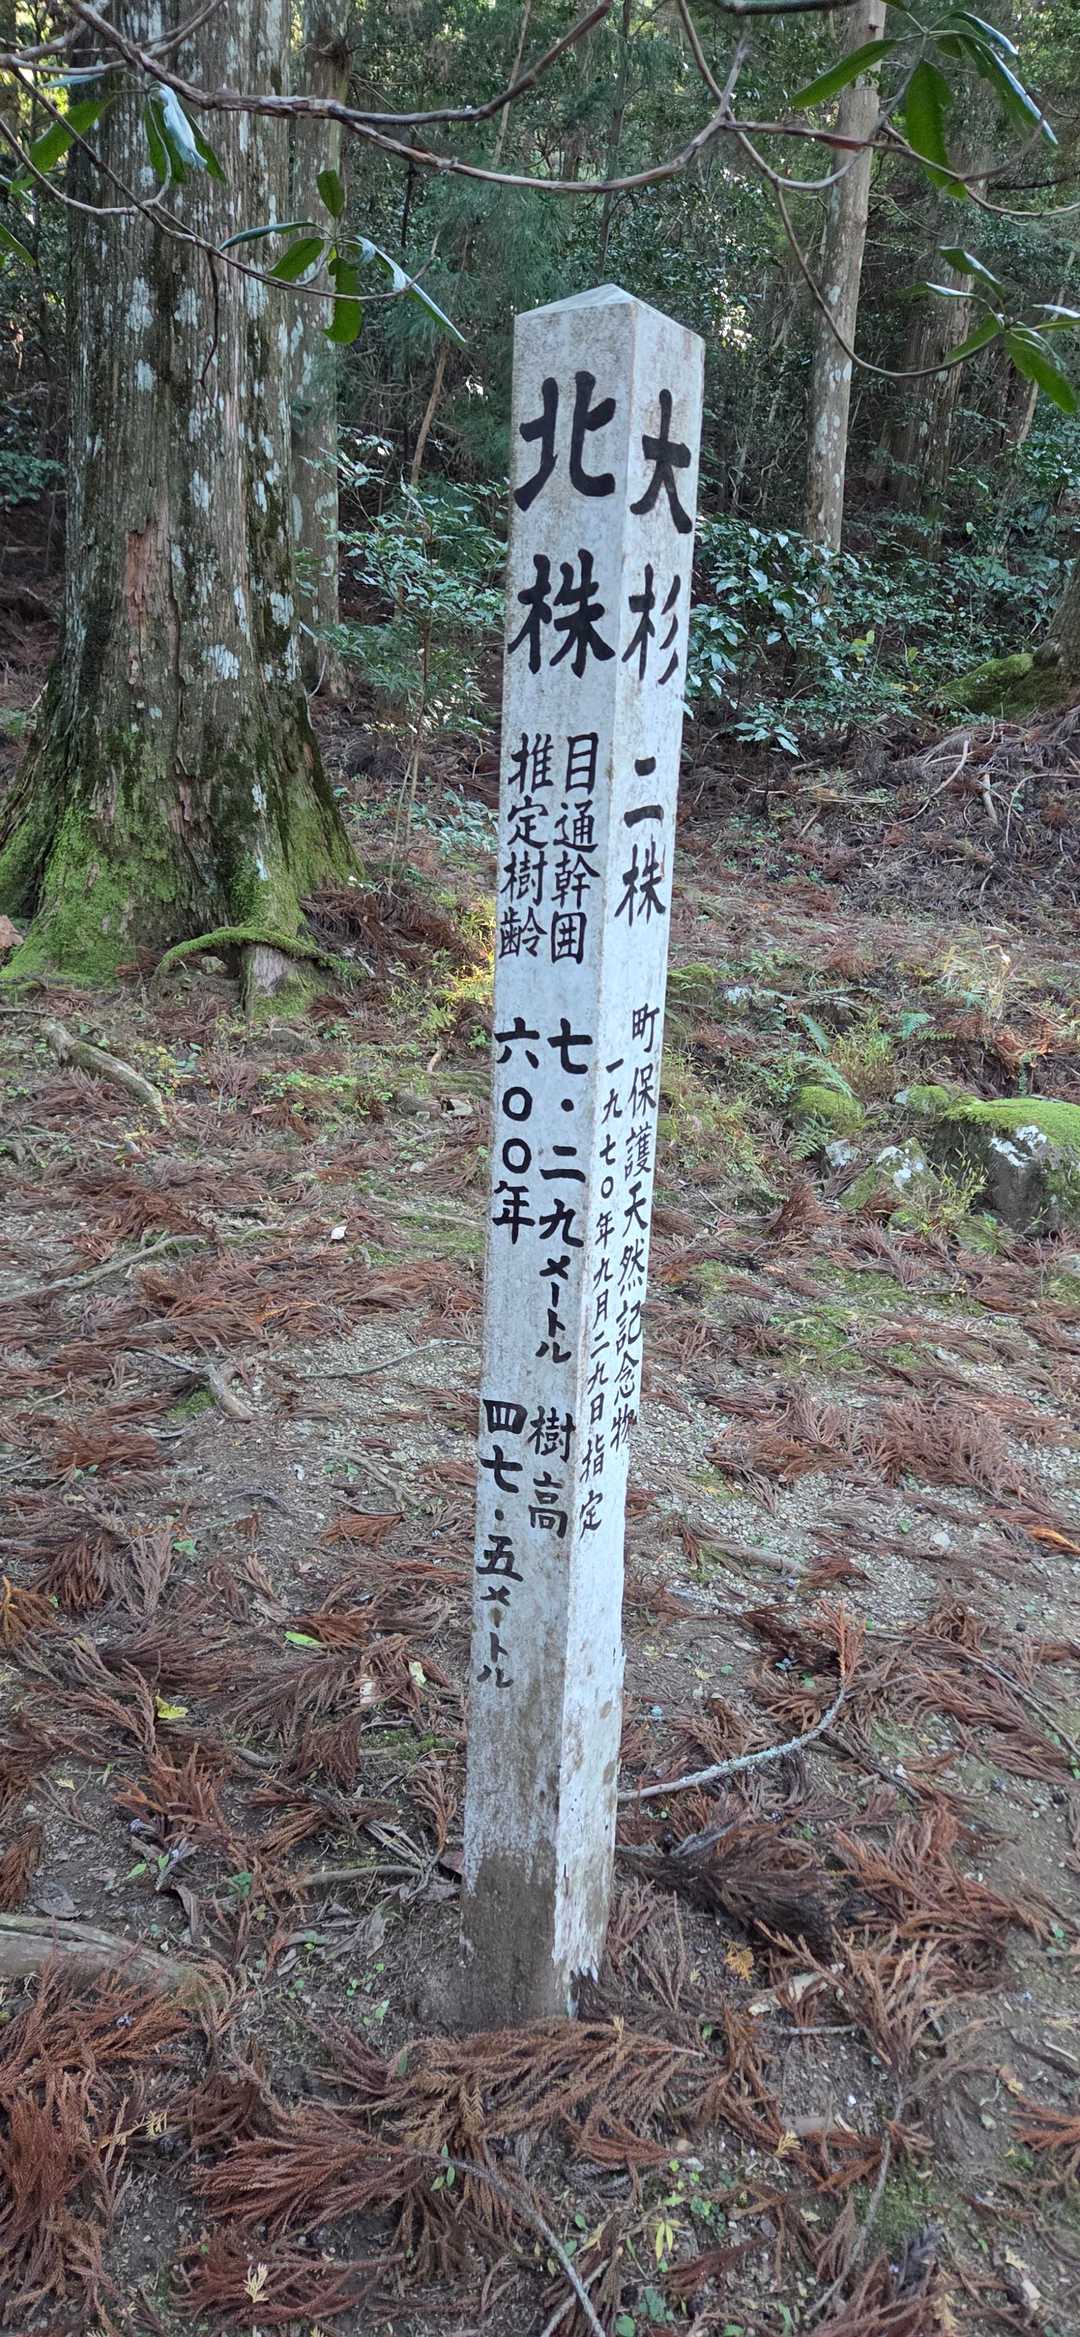 大杉 二株
町保護天然記念物
一九七〇年九月二九日指定
北株
目通幹囲 七・二九メートル 樹高
推定樹齢 六〇〇年 四七・五メートル